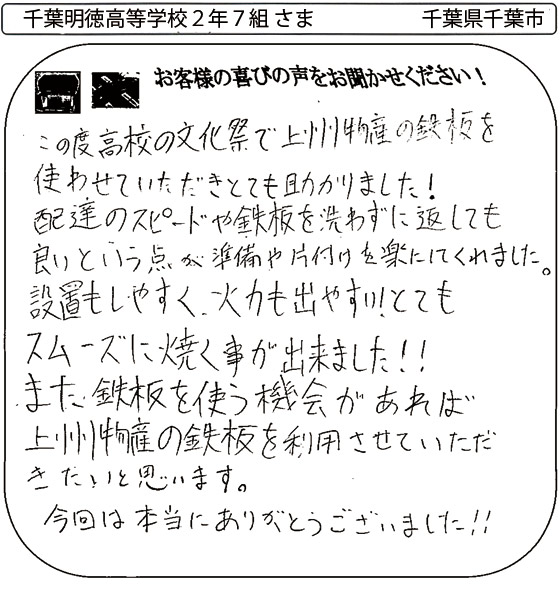 千葉明徳高等学校2年7組さま 千葉県千葉市
お客様の喜びの声をお聞かせください!
この度高校の文化祭で上州物産の鉄板を
使わせていただきとても助かりました!
配達のスピードや鉄板を洗わずに返しても
良いという点が準備や片付けを楽にしてくれました。
設置もしやすく、火力も出やすい!とても
スムーズに焼く事が出来ました!!
また、鉄板を使う機会があれば
上州物産の鉄板を利用させていただ
きたいと思います。
今回は本当にありがとうございました!!